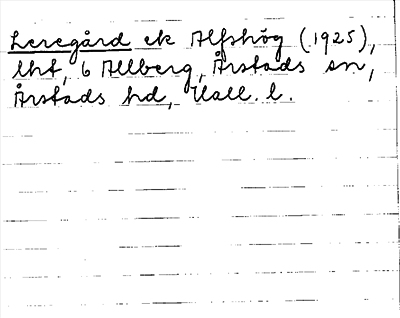 Leregård ek Alfshög (1925),
lht, 6 Allberg, Årstads sn,
Årstads hd, Hall. l.